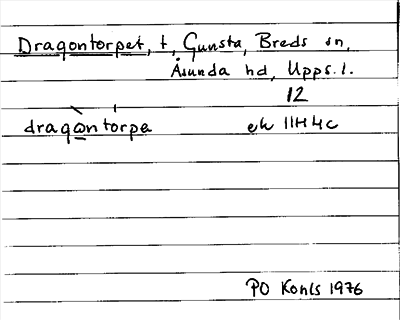 Dragontorpet, t, Gunsta, Breds sn,
Åsunda hd, Upps. l.
12
dragωntorpa ek 11H4c
PO Kohls 1976